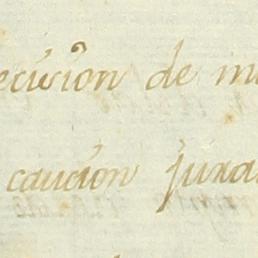 ecucion de m
caucion jura